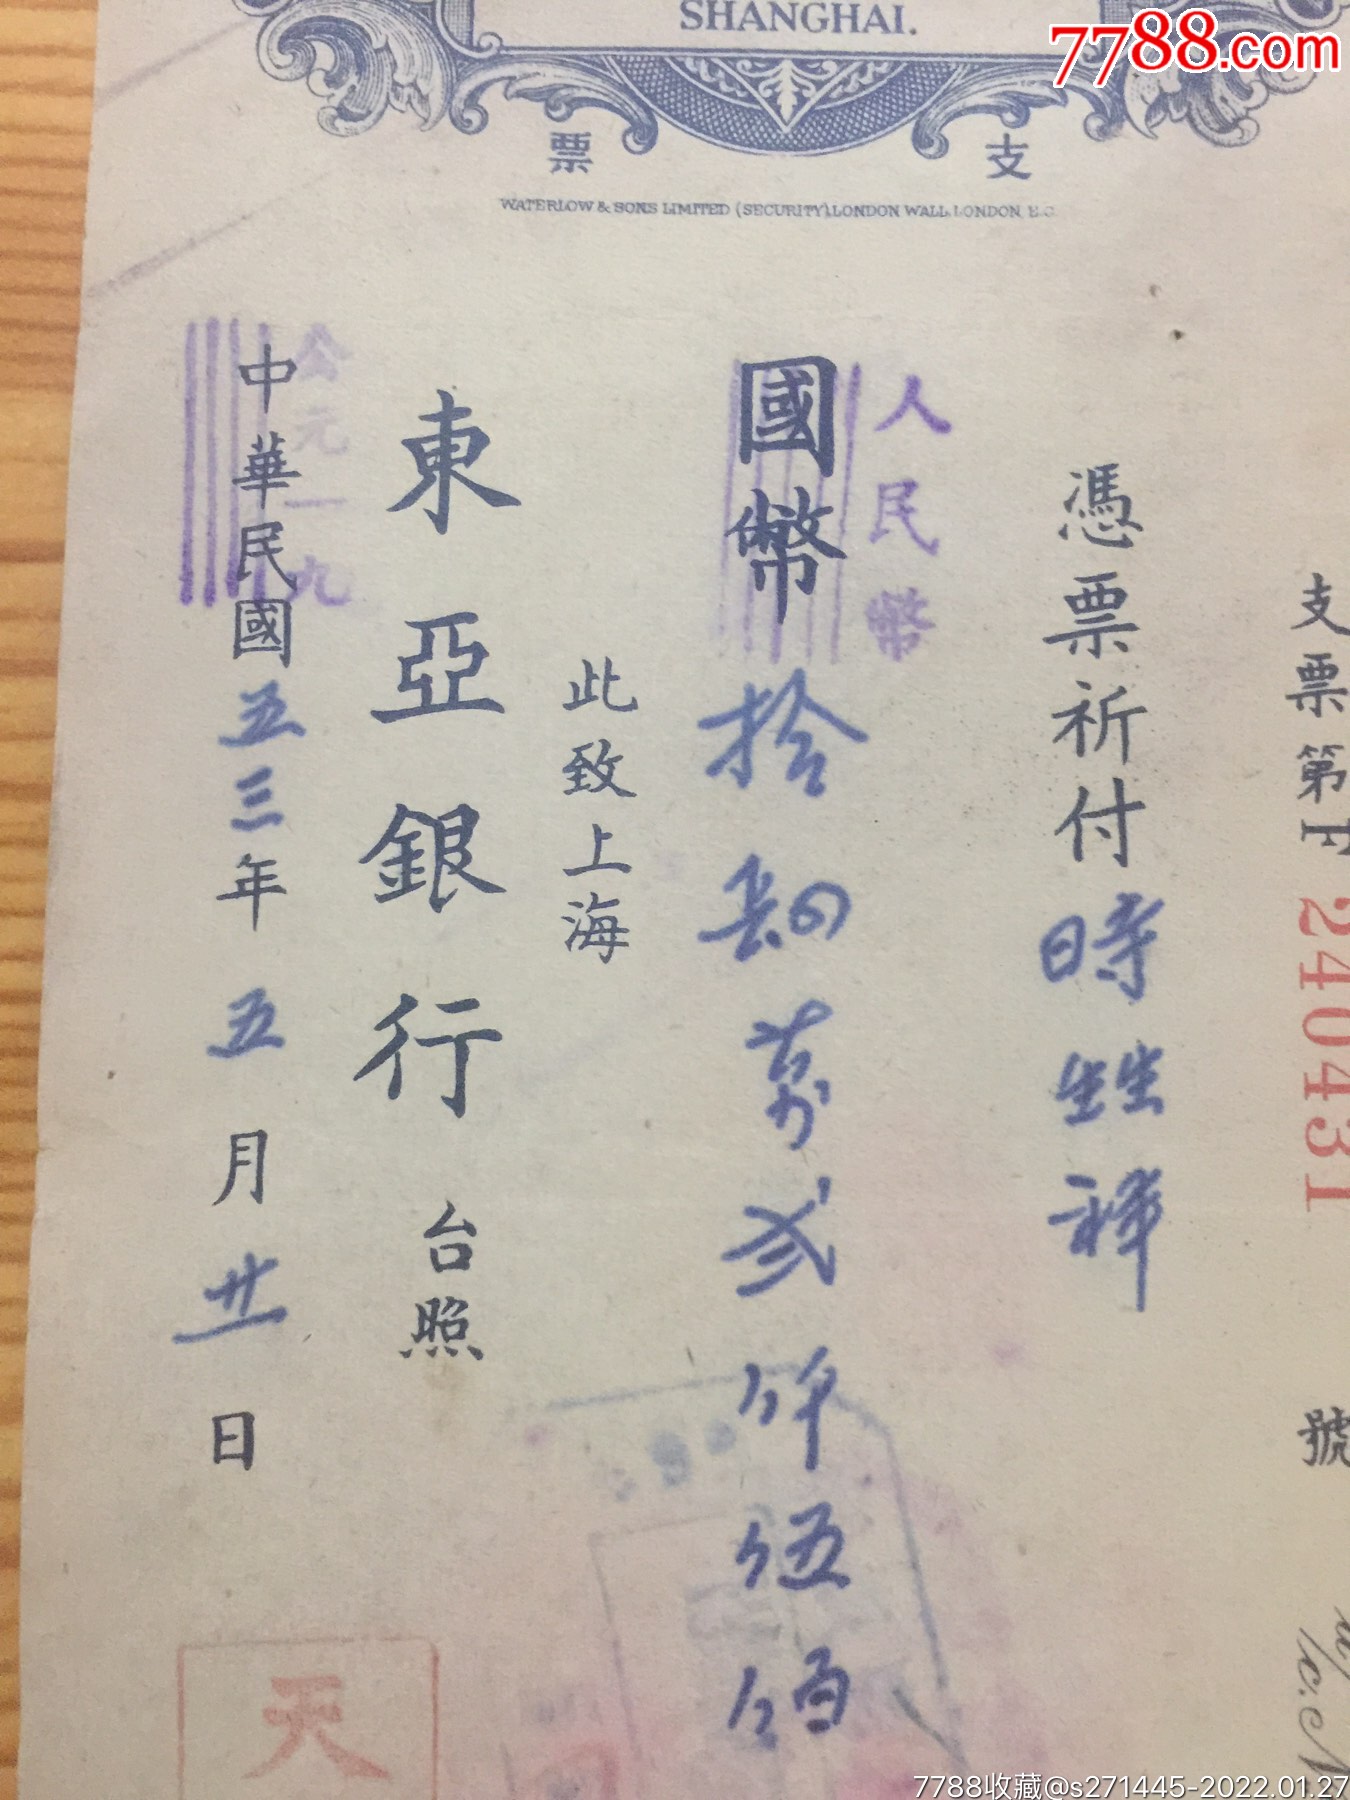 SHANGHAI.
7788.com
支票
WATERLOW & SONS LIMITED (SECURITY), LONDON WALL, LONDON, E.C.
支票第F 240431 號
憑票祈付時甡祥
人民幣
國幣拾萬弍仟伍佰
此致上海
東亞銀行台照
公元一九
中華民國五三年五月廿一日
天
a/c.
7788收藏@s271445-2022.01.27